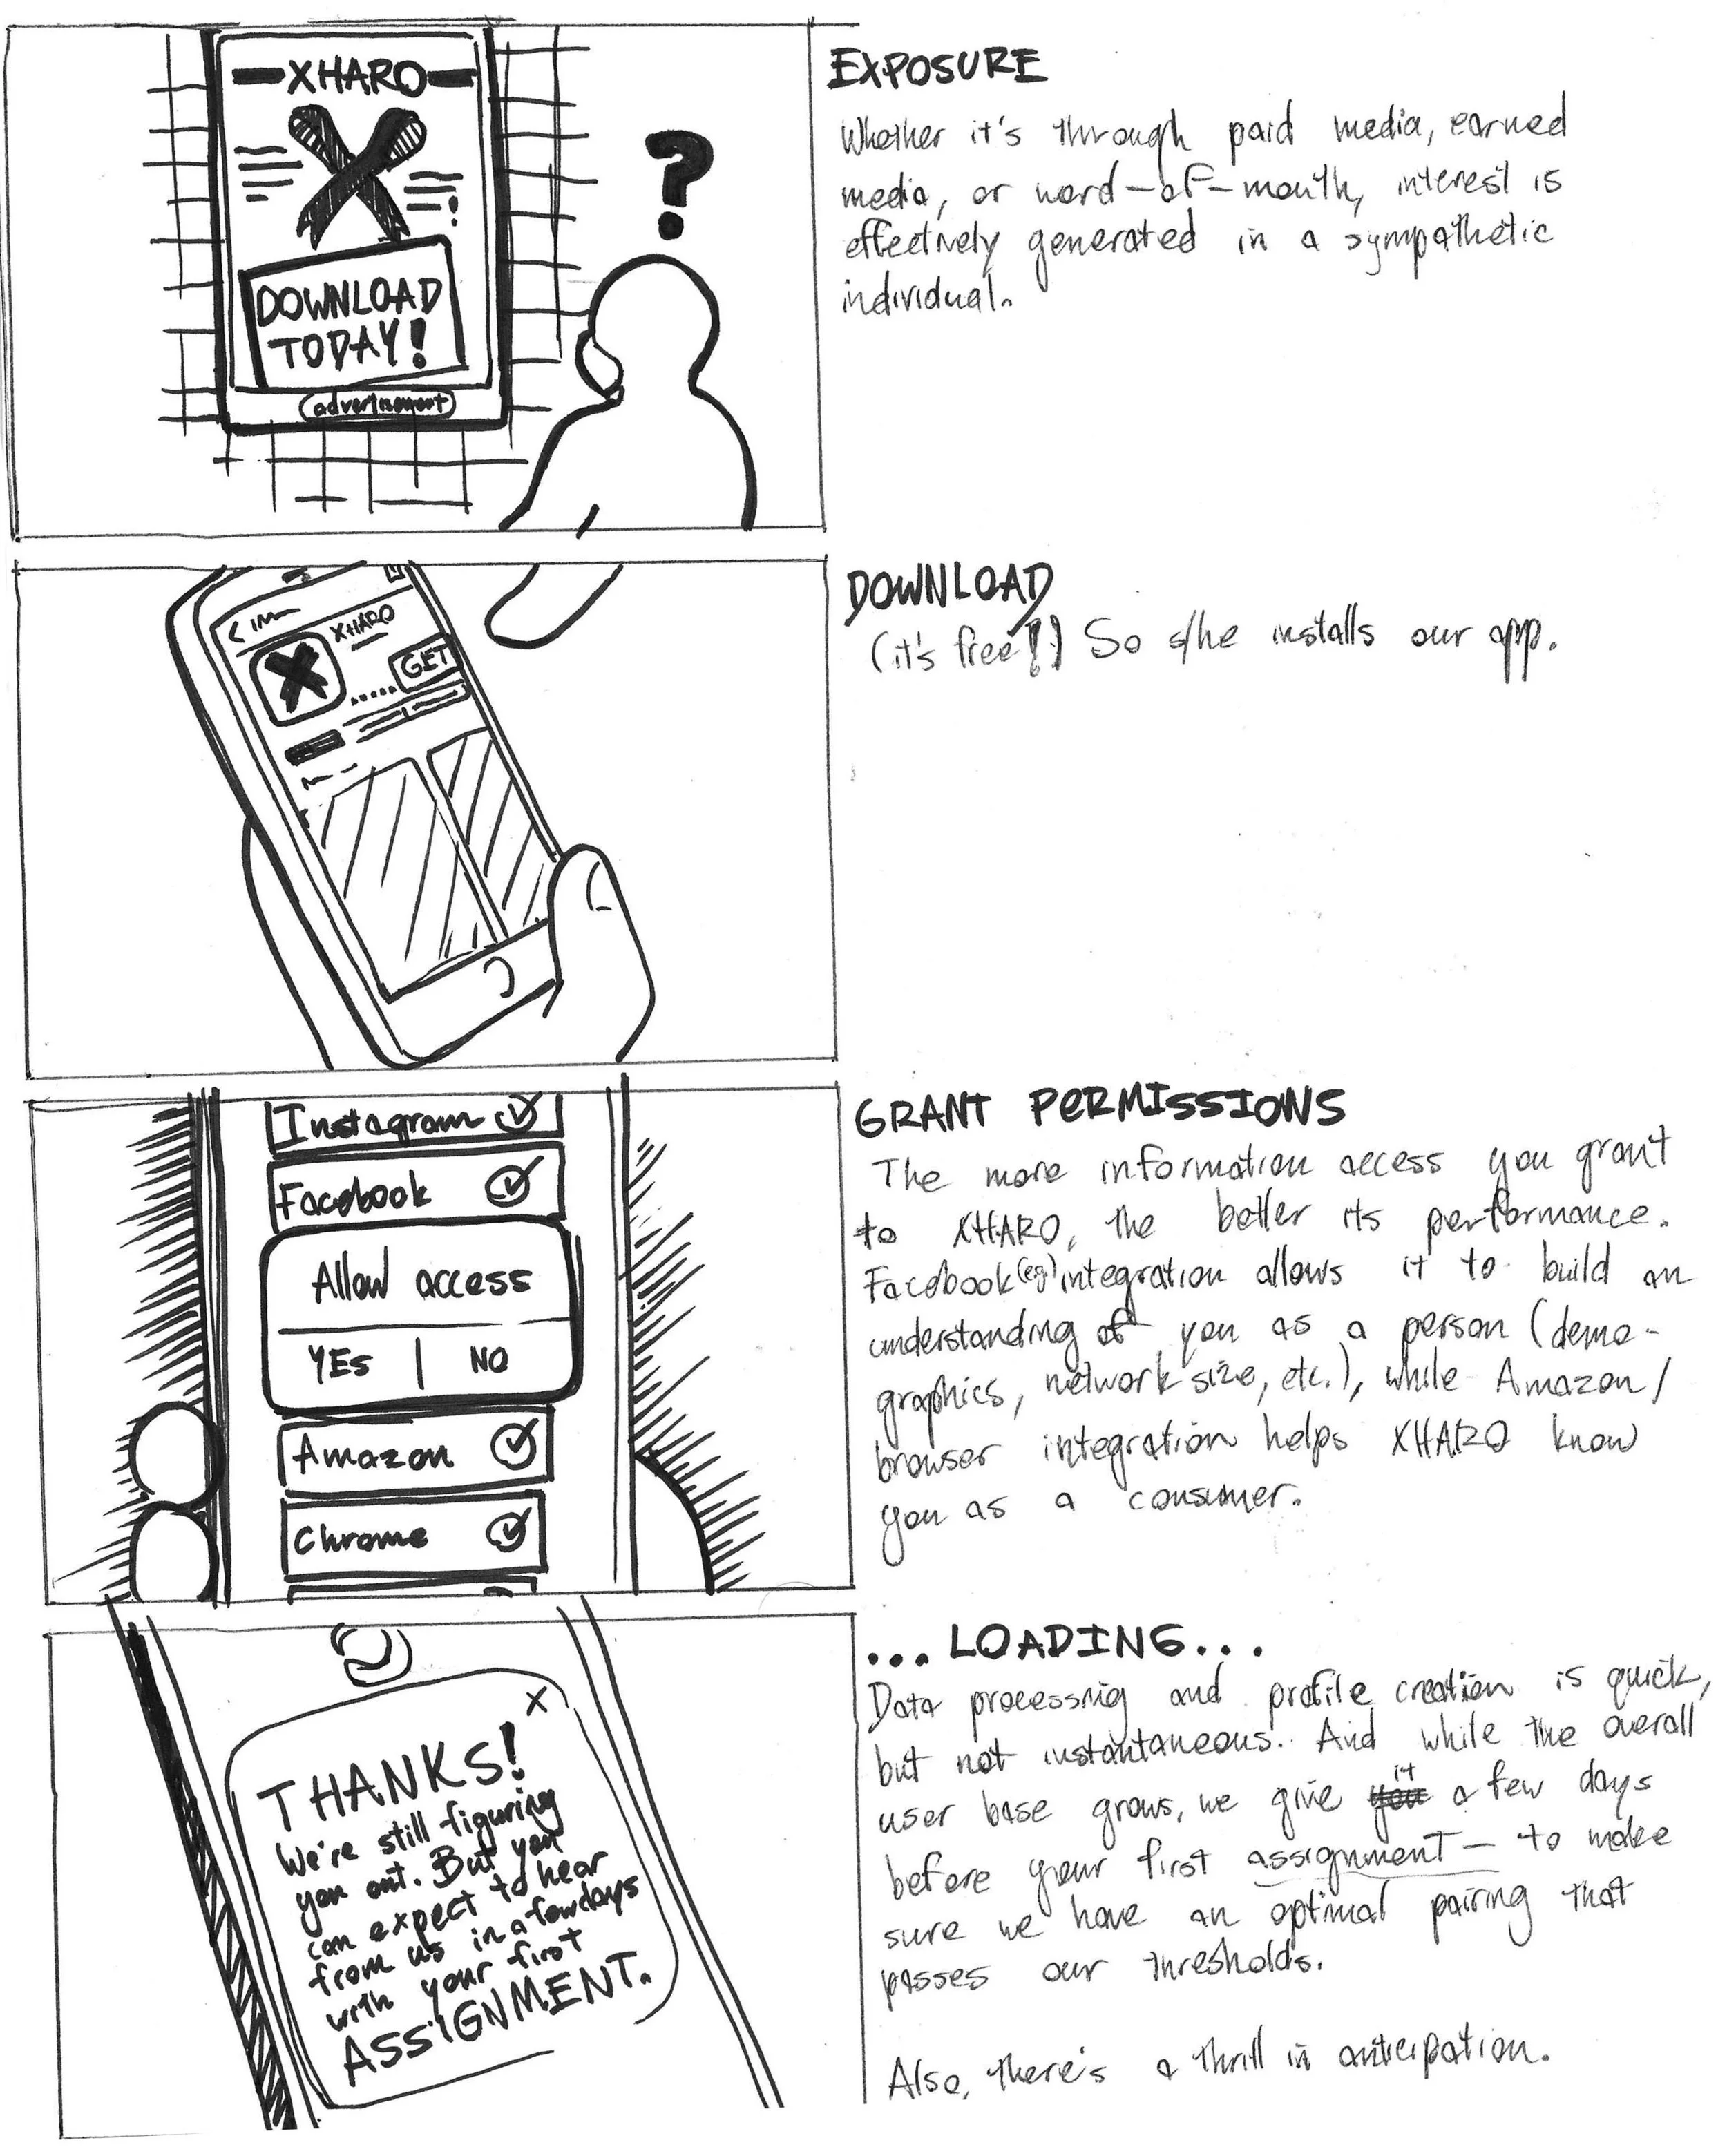 XHARO
DOWNLOAD
TODAY!
advertisement
?
EXPOSURE
Whether it's through paid media, earned
media, or word-of-mouth, interest is
effectively generated in a sympathetic
individual.
XHARO
X
GET
DOWNLOAD
(it's free!!) So s/he installs our app.
Instagram
Facebook
Allow access
YES | NO
Amazon
Chrome
GRANT PERMISSIONS
The more information access you grant
to XHARO, the better its performance.
Facebook (eg) integration allows it to build an
understanding of you as a person (demo-
graphics, network size, etc.), while Amazon/
browser integration helps XHARO know
you as a consumer.
X
THANKS!
We're still figuring
you out. But you
can expect to hear
from us in a few days
with your first
ASSIGNMENT.
...LOADING...
Data processing and profile creation is quick,
but not instantaneous. And while the overall
user base grows, we give it a few days
before your first assignment – to make
sure we have an optimal pairing that
passes our thresholds.
Also, there's a thrill in anticipation.